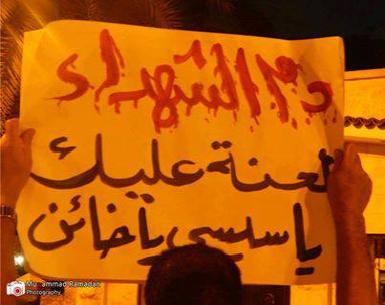 دم الشهداء
لعنة عليك
يا سيسي يا خائن
Mu ammad Ramadan
Photography